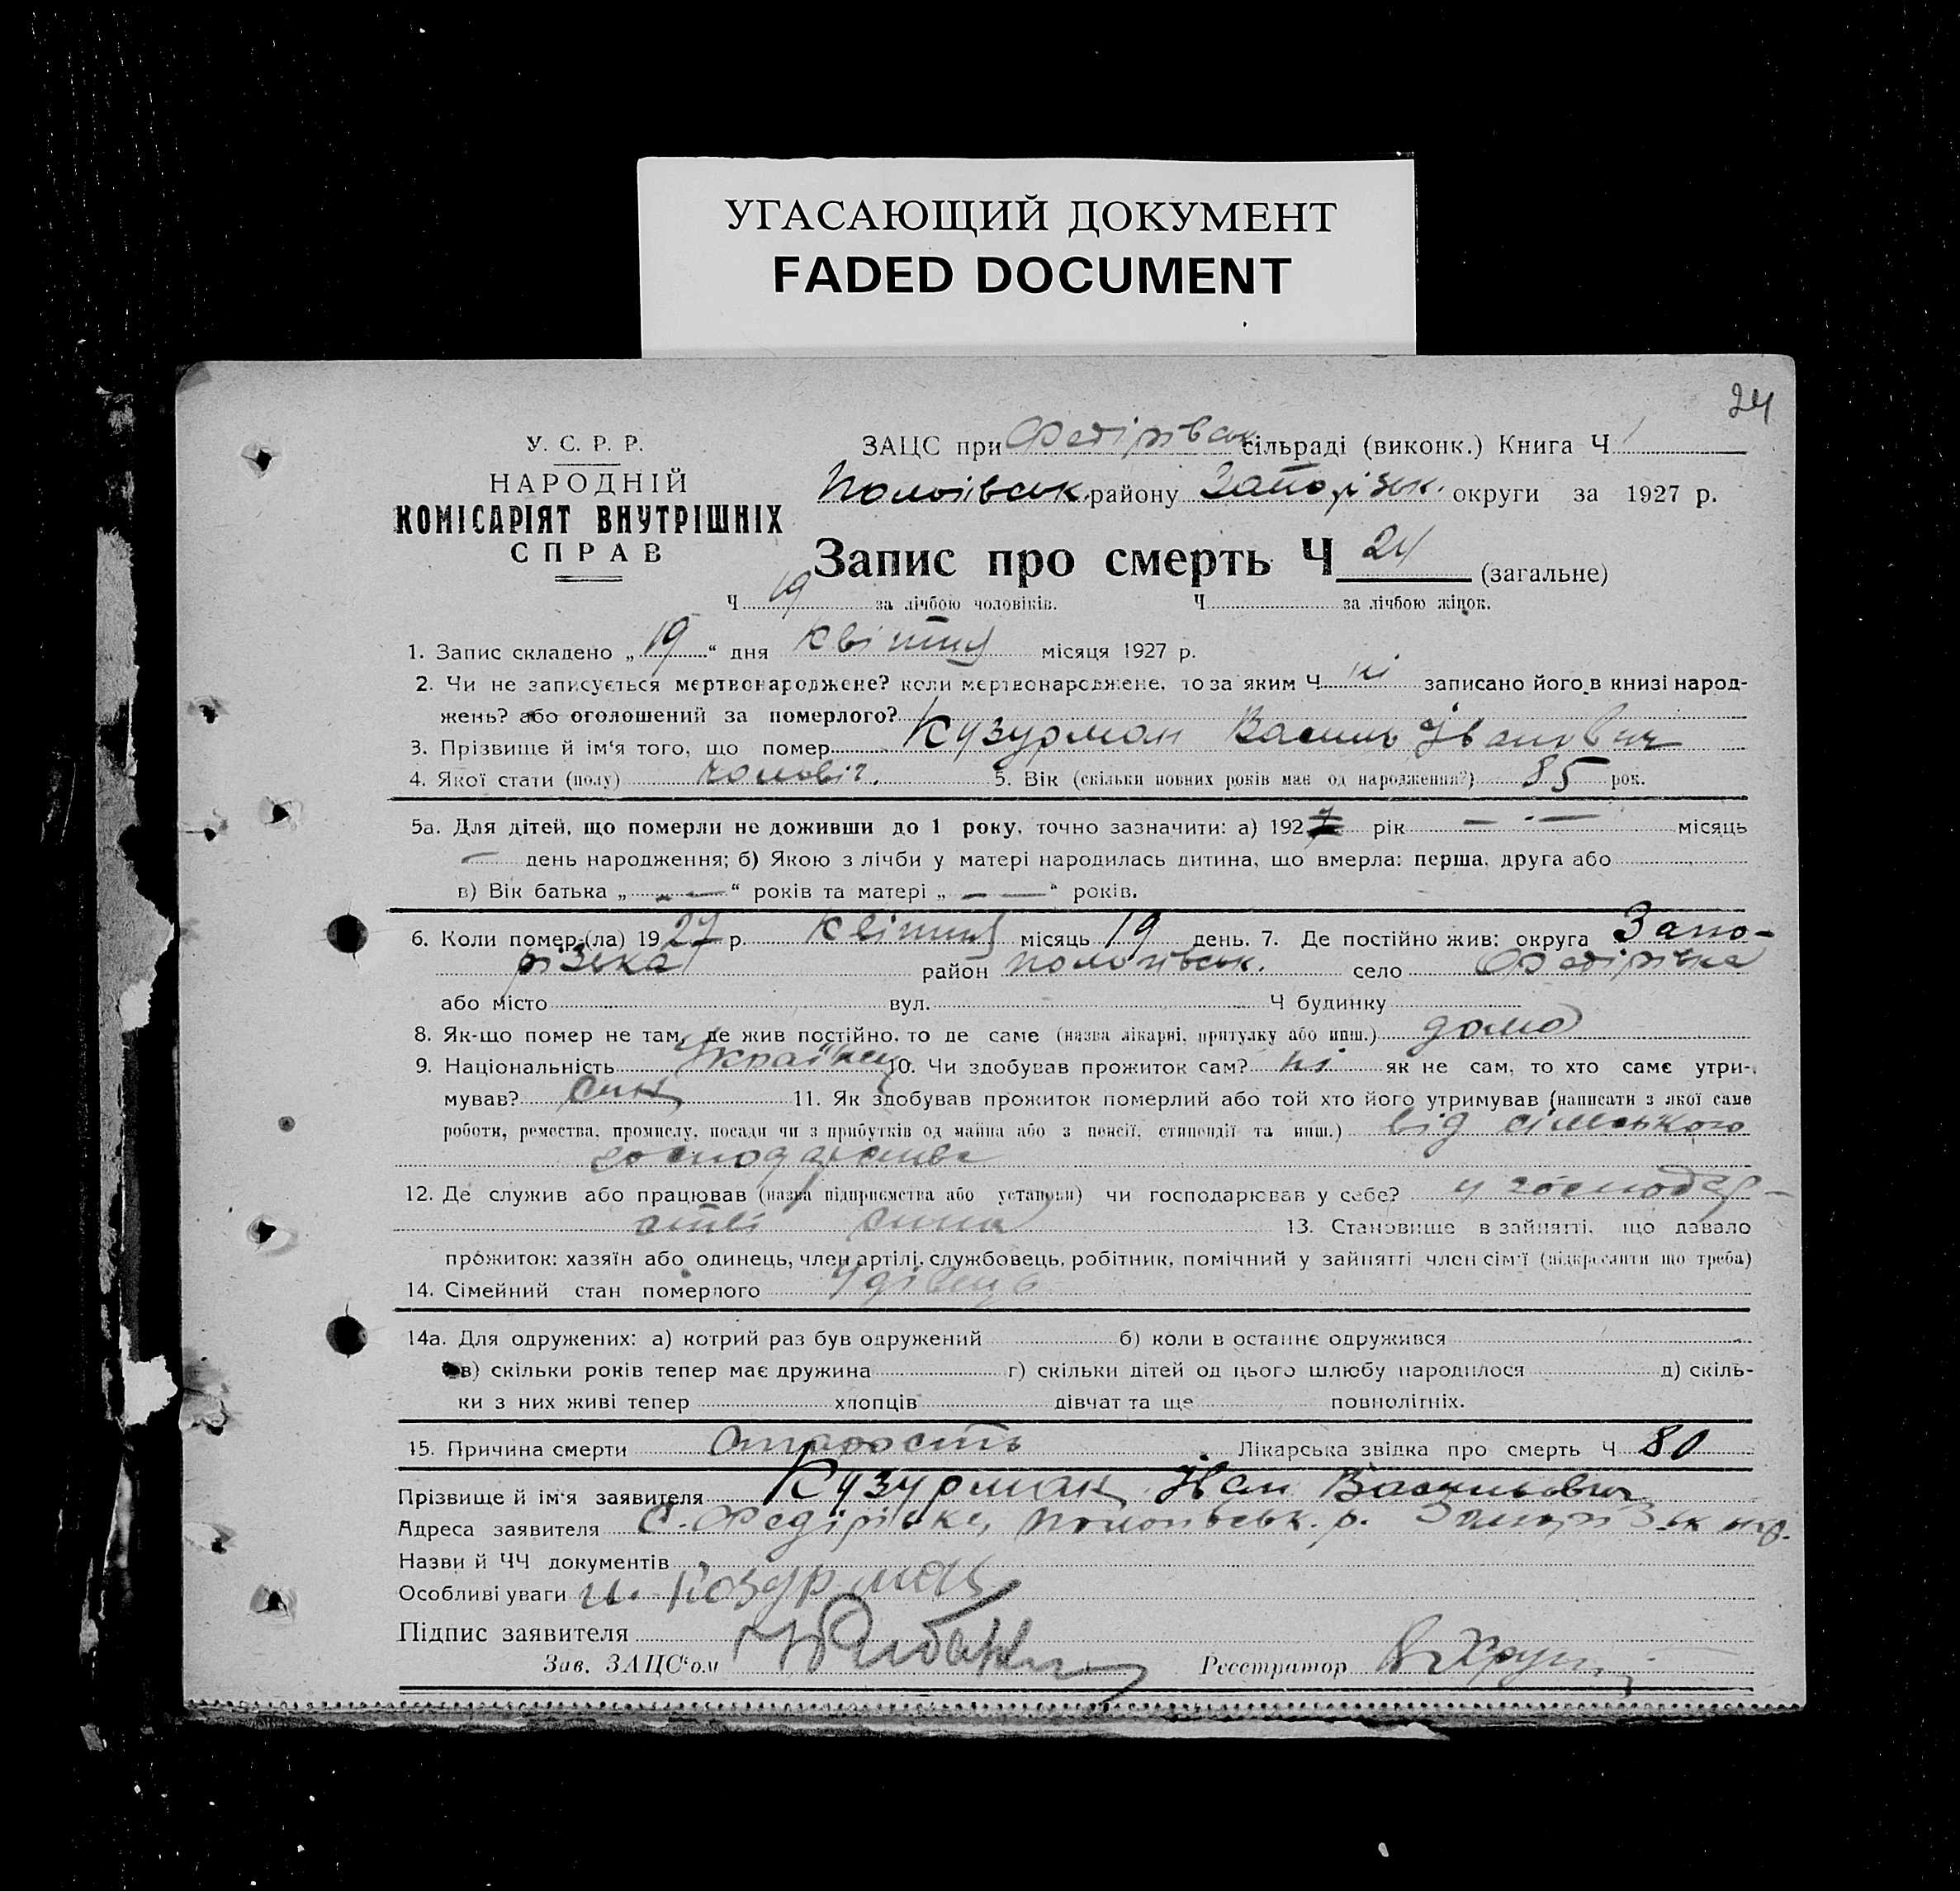 УГАСАЮЩИЙ ДОКУМЕНТ
FADED DOCUMENT
24
У. С. Р. Р.
НАРОДНІЙ
КОМІСАРІЯТ ВНУТРІШНІХ
СПРАВ
ЗАЦС при Федірівськ сільраді (виконк.) Книга Ч 1
Пологівськ. району Запорізьк. округи за 1927 р.
Запис про смерть Ч 24 (загальне)
Ч 19 за лічбою чоловіків. Ч за лічбою жінок.
1. Запис складено „ 19 “ дня квітня місяця 1927 р.
2. Чи не записується мертвонароджене? коли мертвонароджене, то за яким Ч ні записано його в книзі народ-
жень? або оголошений за померлого?
3. Прізвище й ім‘я того, що помер Кузурман Василь Іванович
4. Якої стати (полу) чоловіч. 5. Вік (скільки повних років має од народження?) 85 рок.
5а. Для дітей, що померли не доживши до 1 року, точно зазначити: а) 1927 рік — - — місяць
— день народження; б) Якою з лічби у матері народилась дитина, що вмерла: перша, друга або
в) Вік батька „ - — “ років та матері „ — — “ років.
6. Коли помер (ла) 1927 р. квітня місяць 19 день. 7. Де постійно жив: округа Запо-
різька район пологівськ. село Федірівка
або місто вул. Ч будинку
8. Як-що помер не там, де жив постійно, то де саме (назва лікарні, притулку або инш.) дома
9. Національність Українец 10. Чи здобував прожиток сам? ні як не сам, то хто саме утри-
мував? син 11. Як здобував прожиток померлий або той хто його утримував (написати з якої саме
роботи, ремества, промислу, посади чи з прибутків од майна або з пенсії, стипендії та инш.) від сільського
господарства
12. Де служив або працював (назва підприємства або установи) чи господарював у себе? у господар-
стві сина 13. Становище в зайнятті, що давало
прожиток: хазяїн або одинець, член артілі, службовець, робітник, помічний у зайнятті член сім‘ї (підкреслити що треба)
14. Сімейний стан померлого Удівець
14а. Для одружених: а) котрий раз був одружений б) коли в останнє одружився
в) скільки років тепер має дружина г) скільки дітей од цього шлюбу народилося д) скіль-
ки з них живі тепер хлопців дівчат та ще повнолітніх.
15. Причина смерти старость Лікарська звідка про смерть Ч 80
Прізвище й ім‘я заявителя Кузурман Іван Васильович
Адреса заявителя С. Федірівка, Пологівськ. р. Запорізьк окр.
Назви й ЧЧ документів
Особливі уваги и. Козурман
Підпис заявителя
Зав. ЗАЦС‘ом
Реєстратор